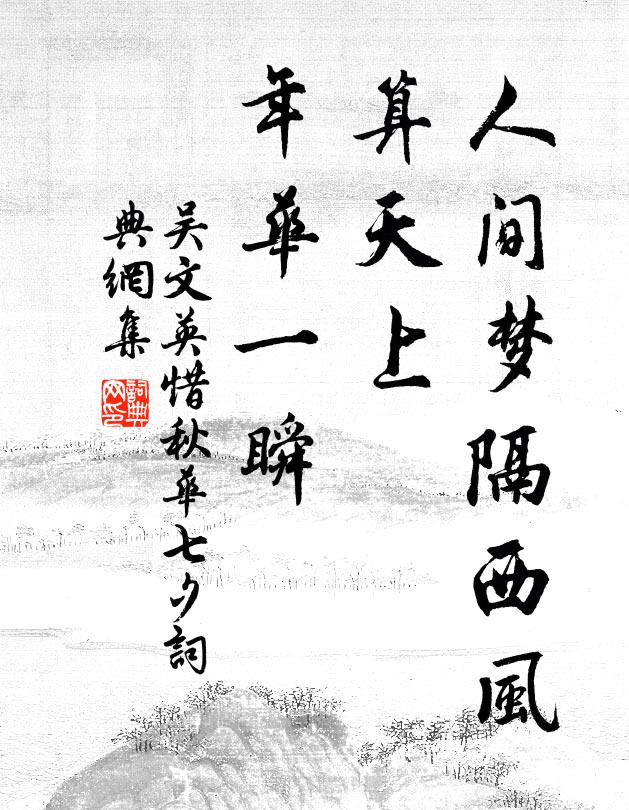 人间梦隔西風
算天上
年華一瞬
吴文英惜秋華七夕詞
典網集
詞典网印